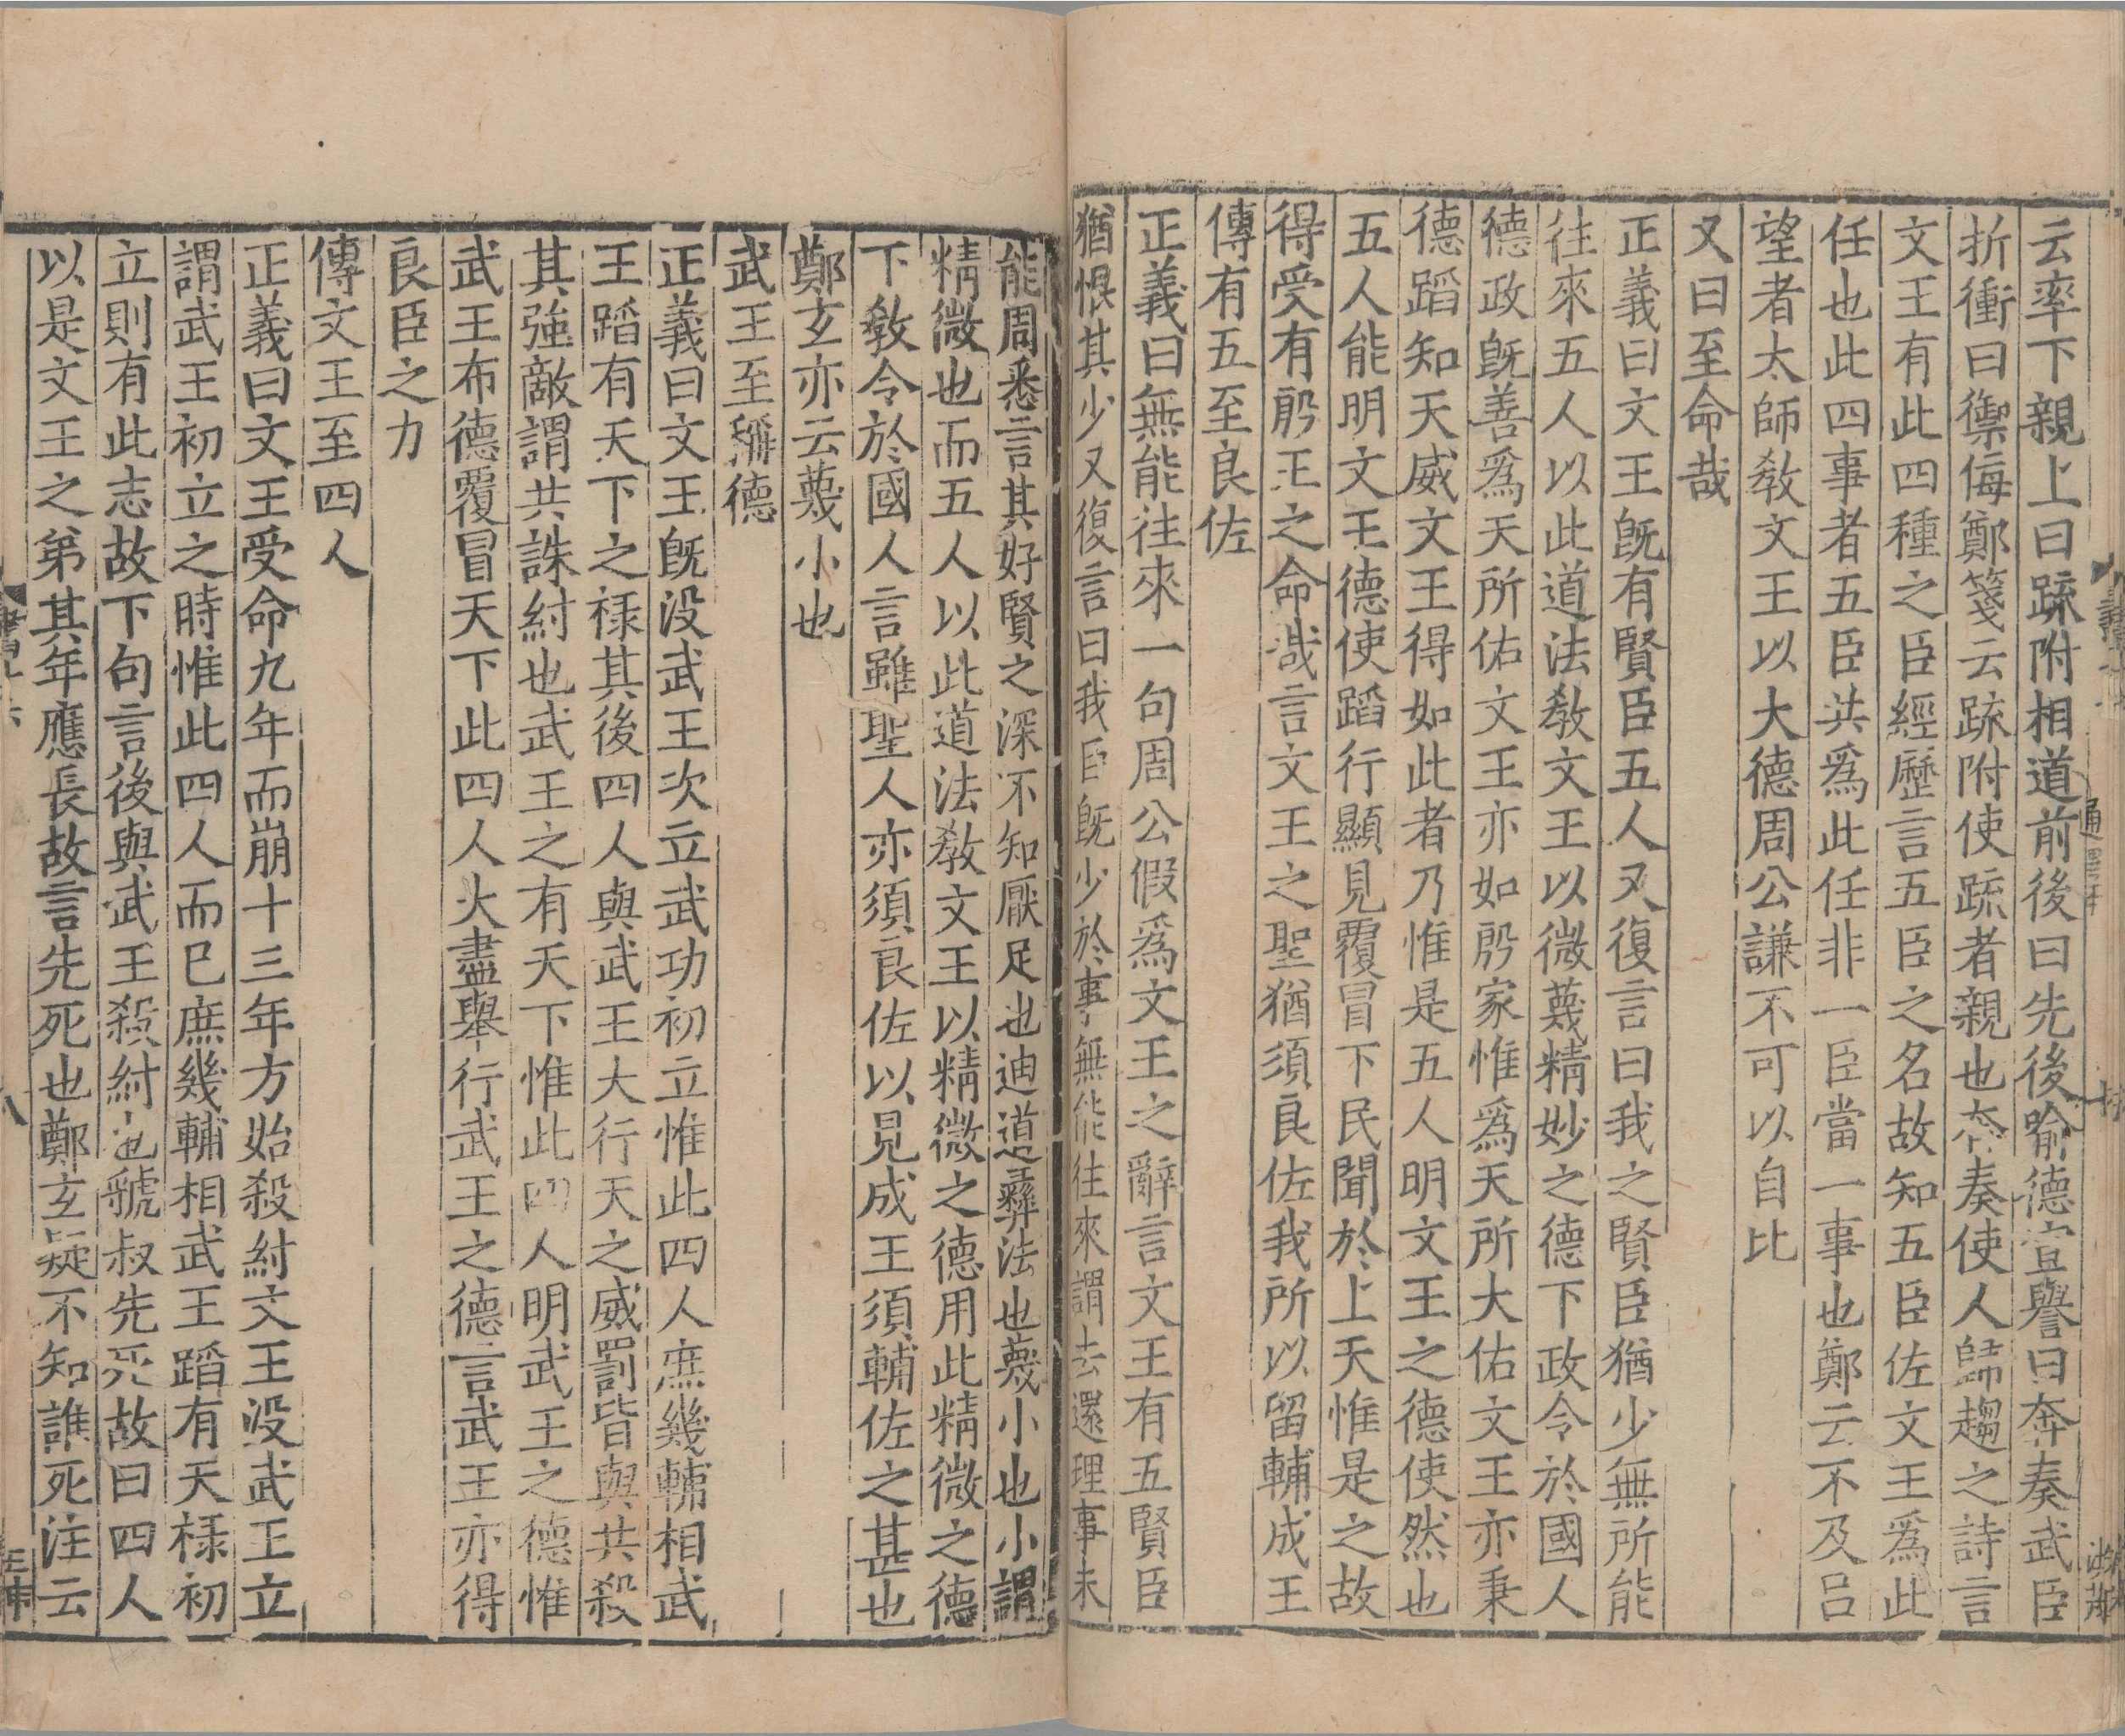 云率下親上曰疏附相道前後曰先後喻德宣譽曰奔奏武臣
折衝曰禦侮鄭箋云疏附使疏者親也奔奏使人歸趨之詩言
文王有此四種之臣經歷言五臣之名故知五臣佐文王爲此
任也此四事者五臣共爲此任非一臣當一事也鄭云不及吕
望者太師敎文王以大德周公謙不可以自比
又曰至命哉
正義曰文王旣有賢臣五人又復言曰我之賢臣猶少無所能
往來五人以此道法敎文王以微蔑精妙之德下政令於國人
德政旣善爲天所佑文王亦如殷家惟爲天所大佑文王亦秉
德蹈知天威文王得如此者乃惟是五人明文王之德使然也
五人能明文王德使蹈行顯見覆冒下民聞於上天惟是之故
得受有殷王之命哉言文王之聖猶須良佐我所以留輔成王
傳有五至良佐
正義曰無能往來一句周公假爲文王之辭言文王有五賢臣
猶恨其少又復言曰我臣旣少於事無能往來謂去還理事未
能周悉言其好賢之深不知厭足也迪道彝法也蔑小也小謂
精微也而五人以此道法敎文王以精微之德用此精微之德
下敎令於國人言雖聖人亦須良佐以見成王須輔佐之甚也
鄭玄亦云蔑小也
武王至稱德
正義曰文王旣没武王次立武功初立惟此四人庶幾輔相武
王蹈有天下之禄其後四人與武王大行天之威罰皆與共殺
其強敵謂共誅紂也武王之有天下惟此四人明武王之德惟
武王布德覆冒天下此四人大盡舉行武王之德言武王亦得
良臣之力
傳文王至四人
正義曰文王受命九年而崩十三年方始殺紂文王没武王立
謂武王初立之時惟此四人而已庶幾輔相武王蹈有天禄初
立則有此志故下句言後與武王殺紂也虢叔先死故曰四人
以是文王之弟其年應長故言先死也鄭玄疑不知誰死注云